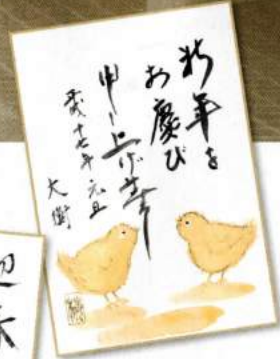 新年を
お慶び
申し上げます
平成十七年 元旦
大樹